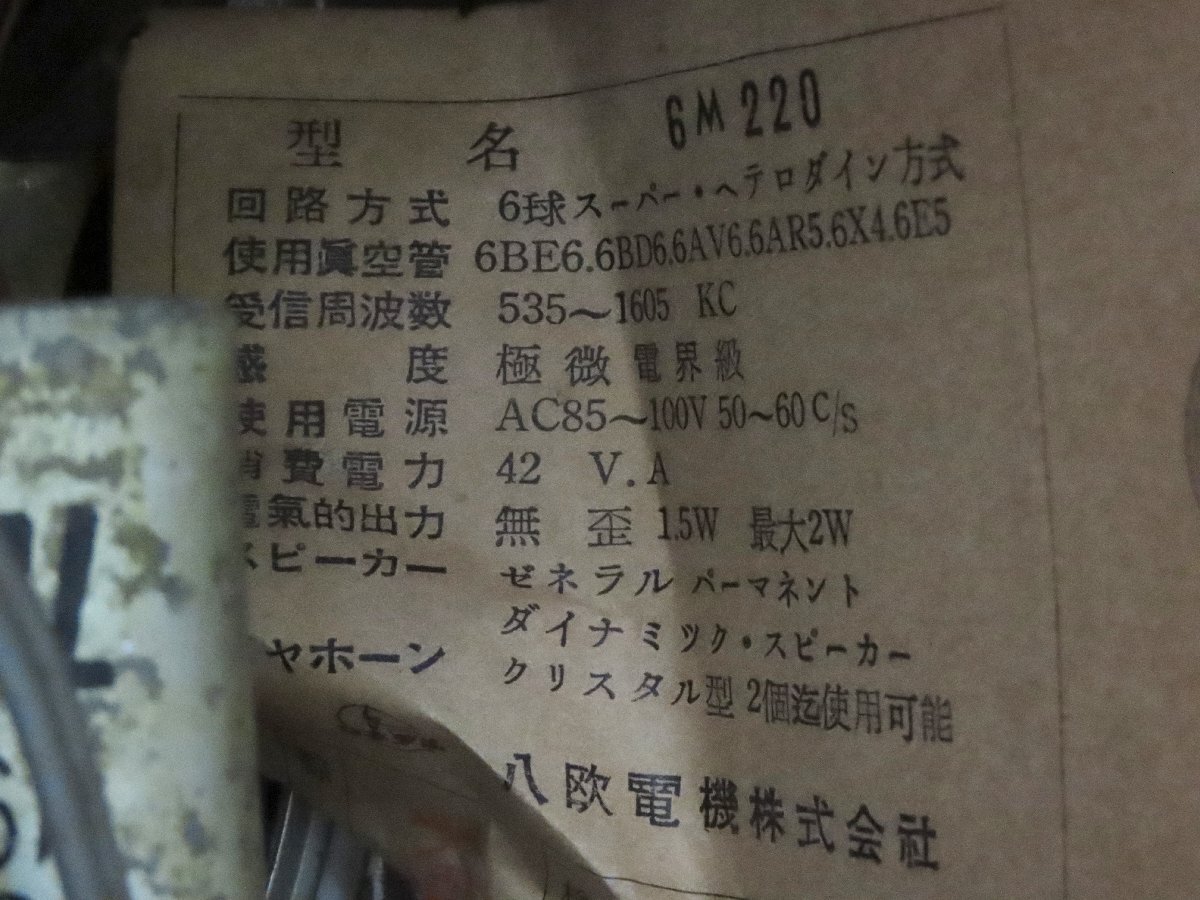 型名 6M220
回路方式 6球スーパー・ヘテロダイン方式
使用眞空管 6BE6.6BD6.6AV6.6AR5.6X4.6E5
受信周波数 535~1605 KC
感度 極微電界級
使用電源 AC85~100V 50~60C/s
消費電力 42 V.A
電氣的出力 無歪 1.5W 最大2W
スピーカー ゼネラルパーマネント
ダイナミック・スピーカー
ャホーン クリスタル型 2個迄使用可能
八欧電機株式会社